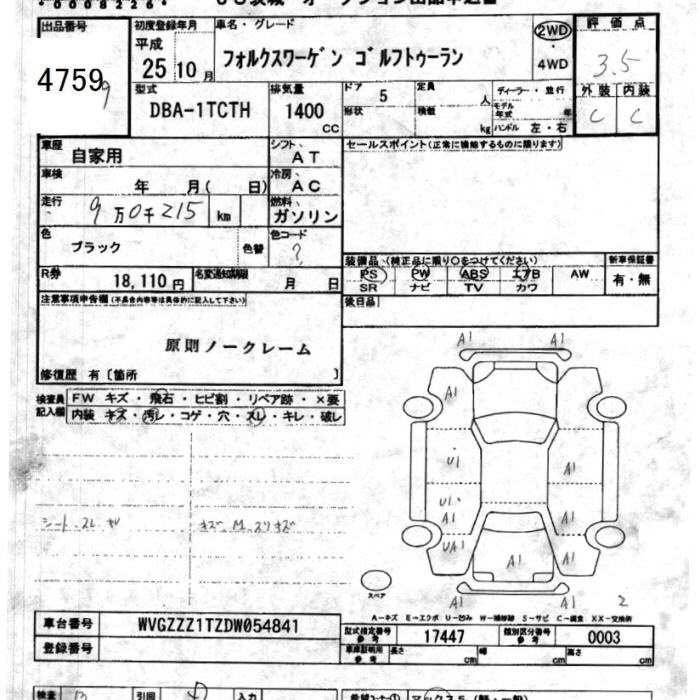 出品番号
4759
9
初度登録年月
平成
25 10 月
車名・グレード
フォルクスワーゲン ゴルフトゥーラン
2WD
・
4WD
評価点
3.5
外装 内装
C C
型式
DBA-1TCTH
排気量
1400
CC
ドア
5
形状
定員
人
積載
kg
ディーラー・並行
モデル
年式 年
ハンドル 左・右
車歴
自家用
シフト
AT
セールスポイント(正常に機能するものに限ります)
車検
年 月( 日)
冷房
AC
走行
9万0千215 km
燃料
ガソリン
色
ブラック
色替
色コード
?
装備品 (純正品に限り○をつけてください)
PS PW ABS エアB AW
SR ナビ TV カワ
新車保証書
有・無
R券
18,110円
名変通知期限
月 日
後日品
注意事項申告欄(不具合内容等は具体的に記入して下さい)
原則ノークレーム
修復歴 有〔箇所 〕
検査員
記入欄
FW キズ・飛石・ヒビ割・リペア跡・×要
内装 キズ・汚レ・コゲ・穴・スレ・キレ・破レ
シート スレ
A1 A1
A1
U1 A1
U1 A1
A1
UA1 A1 A1
A1 A1
2
スペア
A-キズ E-エクボ U-凹み W-補修跡 S-サビ C-腐食 XX-交換済
車台番号
WVGZZZ1TZDW054841
型式指定番号
参考
17447
類別区分番号
参考
0003
登録番号
車庫証明用
参考
長さ
cm
幅
cm
高さ
cm
検査
引回
入力